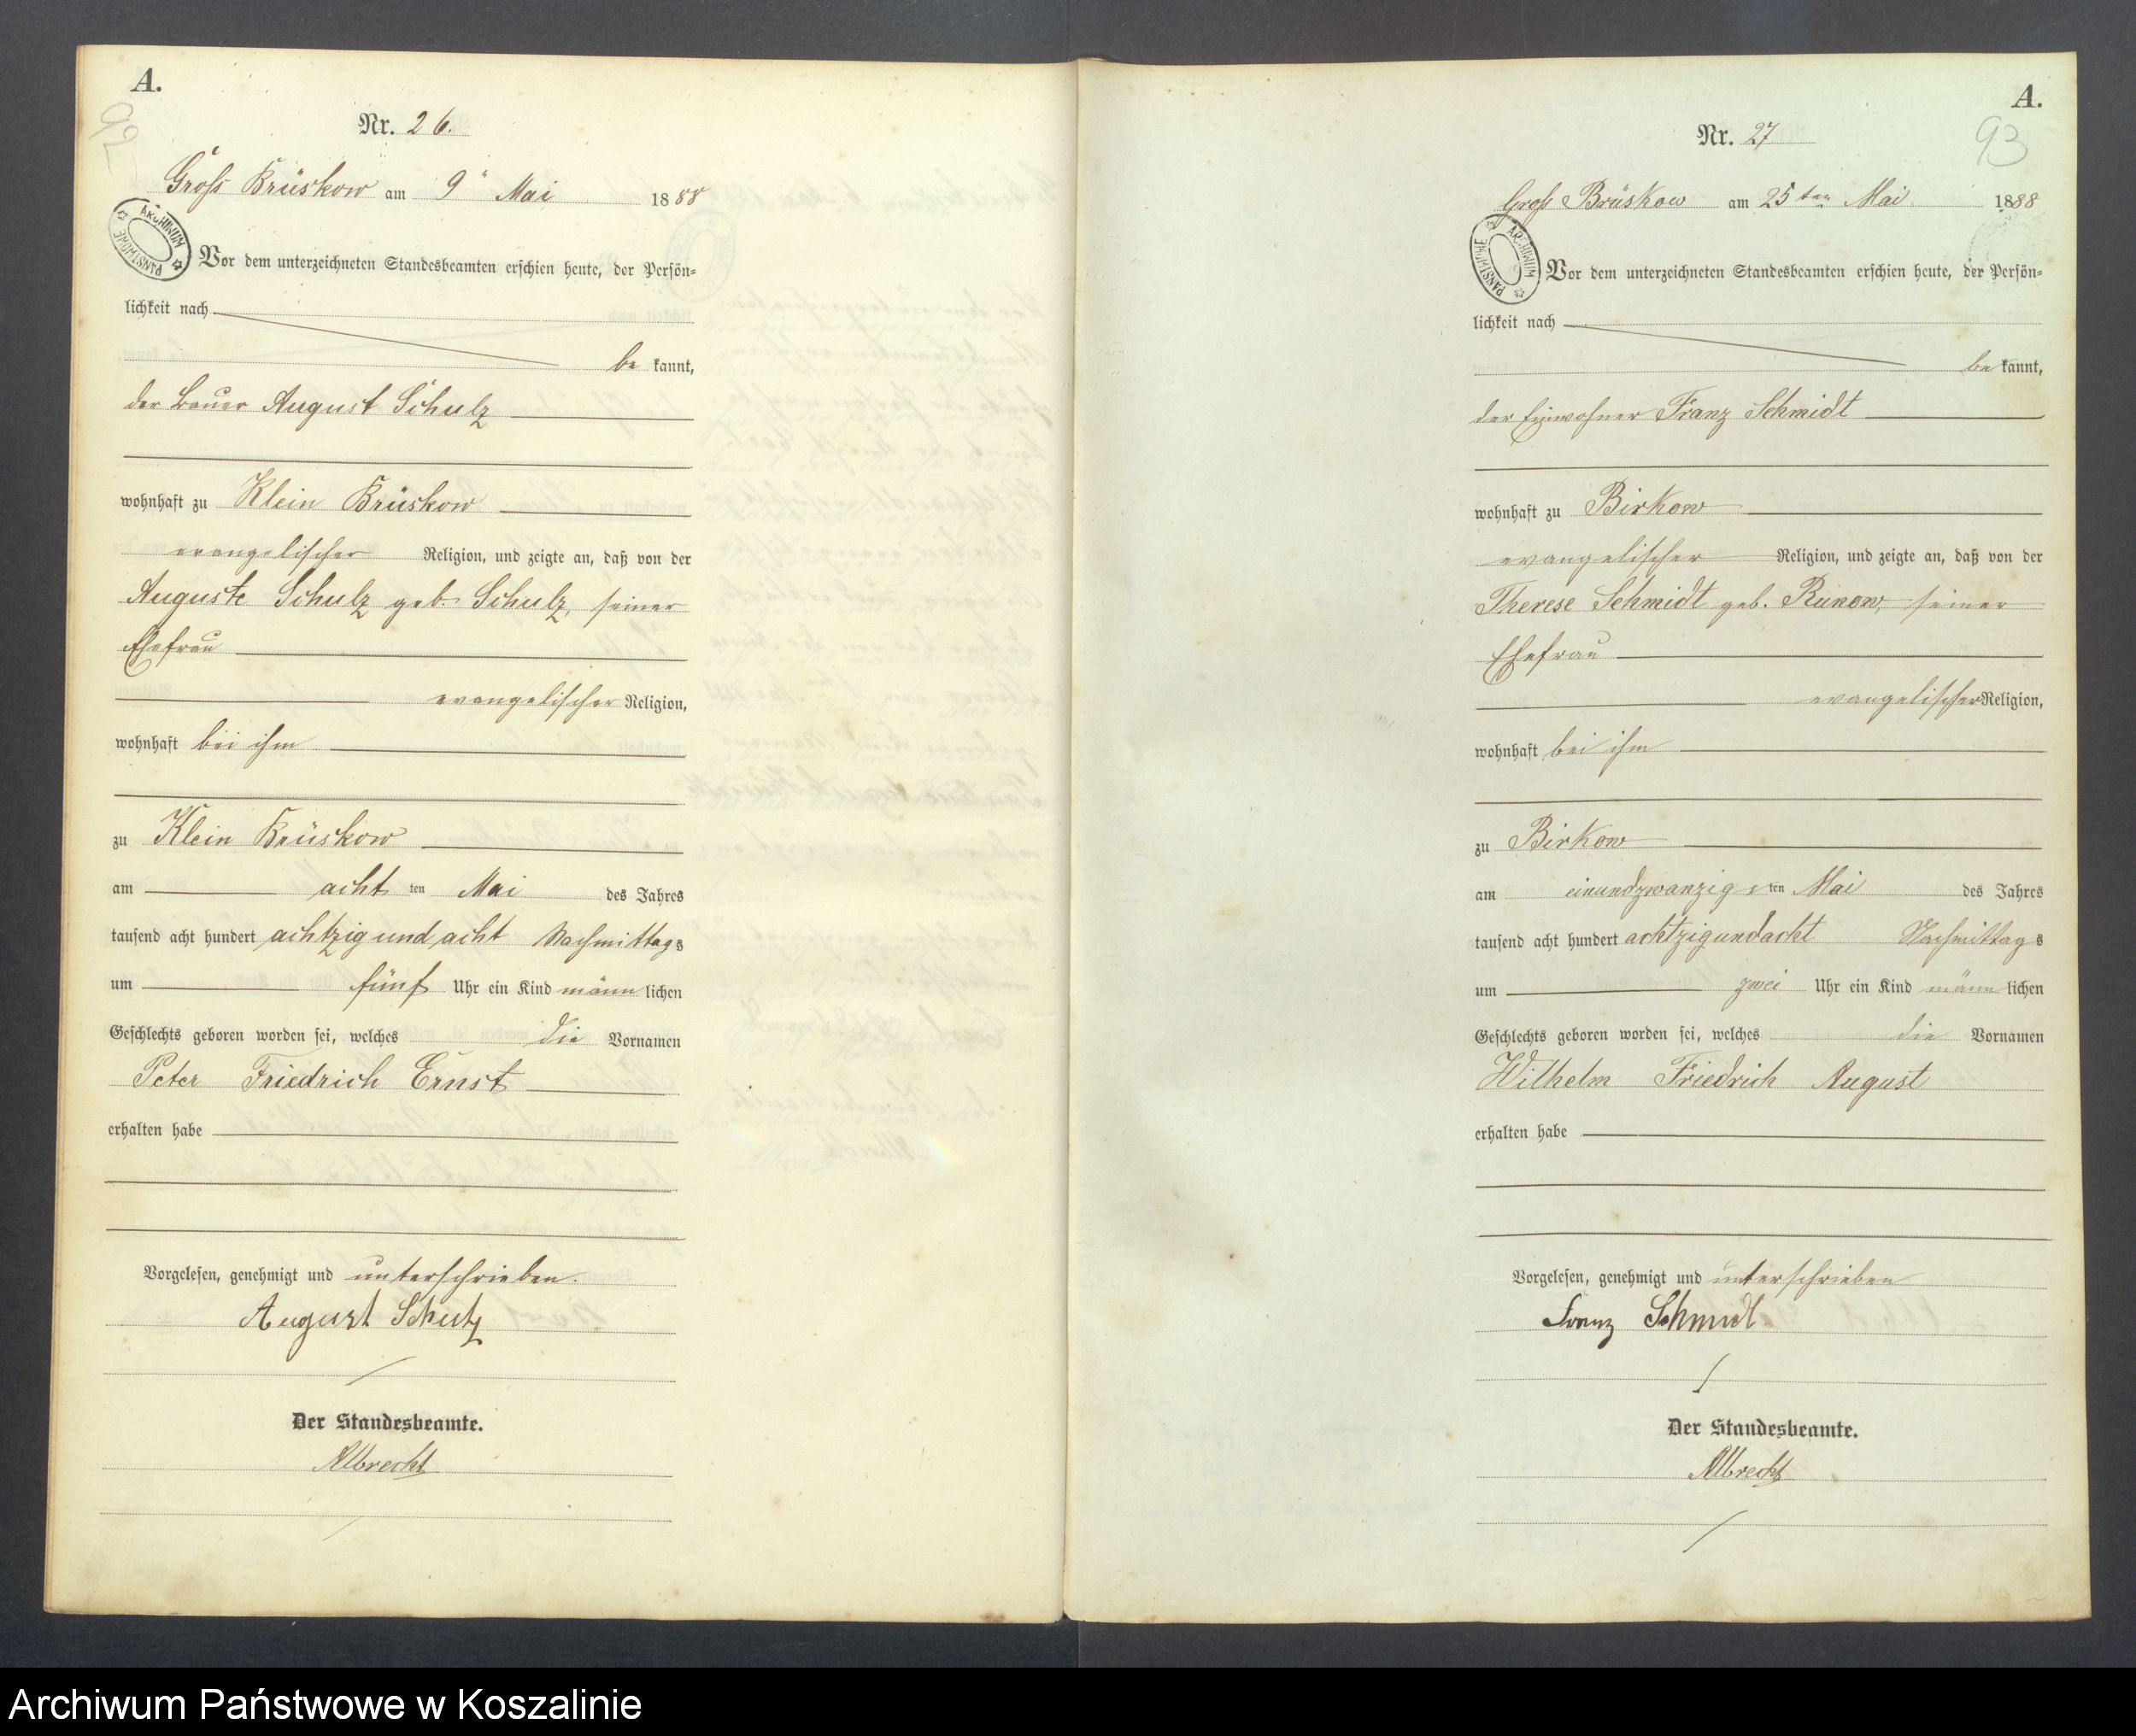 A.
92
Nr. 26.
Groß Brüskow am 9ª Mai 1888
ARCHIWUM PAŃSTWOWE
Vor dem unterzeichneten Standesbeamten erschien heute, der Persön=
lichkeit nach
be kannt,
der Bauer August Schulz
wohnhaft zu Klein Brüskow
evangelischer Religion, und zeigte an, daß von der
Auguste Schulz geb. Schulz, seiner
Ehefrau
evangelischer Religion,
wohnhaft bei ihm
zu Klein Brüskow
am acht ten Mai des Jahres
tausend acht hundert achtzig und acht Nachmittags
um fünf Uhr ein Kind männ lichen
Geschlechts geboren worden sei, welches die Vornamen
Peter Friedrich Ernst
erhalten habe
Vorgelesen, genehmigt und unterschrieben.
August Schulz
Der Standesbeamte.
Albrecht
A.
93
Nr. 27
Groß Brüskow am 25ten Mai 1888
ARCHIWUM PAŃSTWOWE
Vor dem unterzeichneten Standesbeamten erschien heute, der Persön=
lichkeit nach
be kannt,
der Einwohner Franz Schmidt
wohnhaft zu Birkow
evangelischer Religion, und zeigte an, daß von der
Therese Schmidt geb. Runow, seiner
Ehefrau
evangelischer Religion,
wohnhaft bei ihm
zu Birkow
am einundzwanzigs ten Mai des Jahres
tausend acht hundert achtzigundacht Nachmittags
um zwei Uhr ein Kind männ lichen
Geschlechts geboren worden sei, welches die Vornamen
Wilhelm Friedrich August
erhalten habe
Vorgelesen, genehmigt und unterschrieben
Franz Schmidt
Der Standesbeamte.
Albrecht
Archiwum Państwowe w Koszalinie